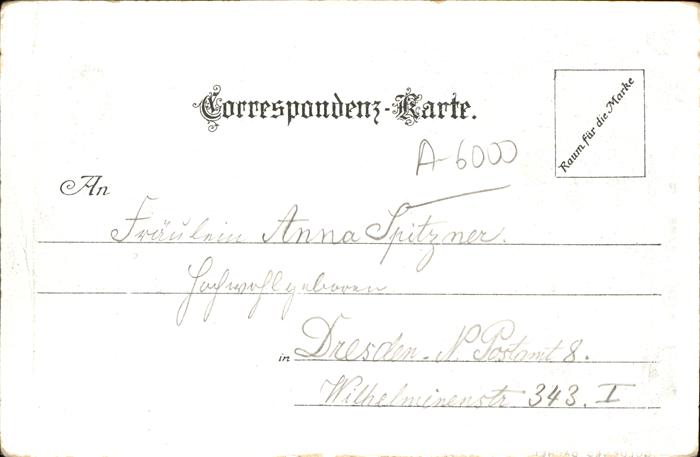 Correspondenz-Karte.
Raum für die Marke
A-6000
An
Fräulein Anna Spitzner.
Hochwohlgeboren
in Dresden-N Postamt 8.
Wilhelminenstr 343. I